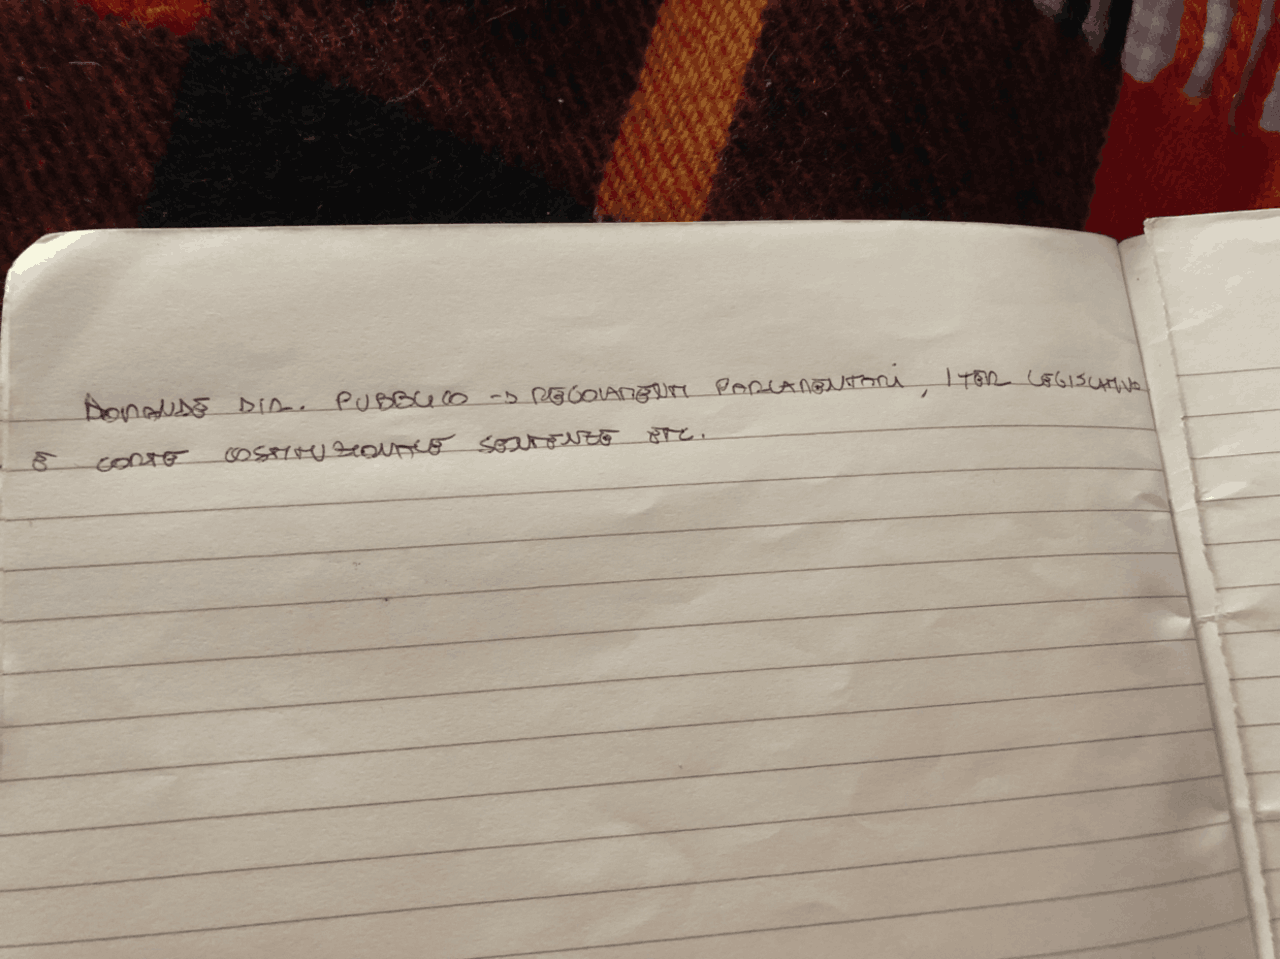 DOMANDE DIR. PUBBLICO -> REGOLAMENTI PARLAMENTARI, ITER LEGISLATIVO
E CORTE COSTITUZIONALE SENTENZE ETC.